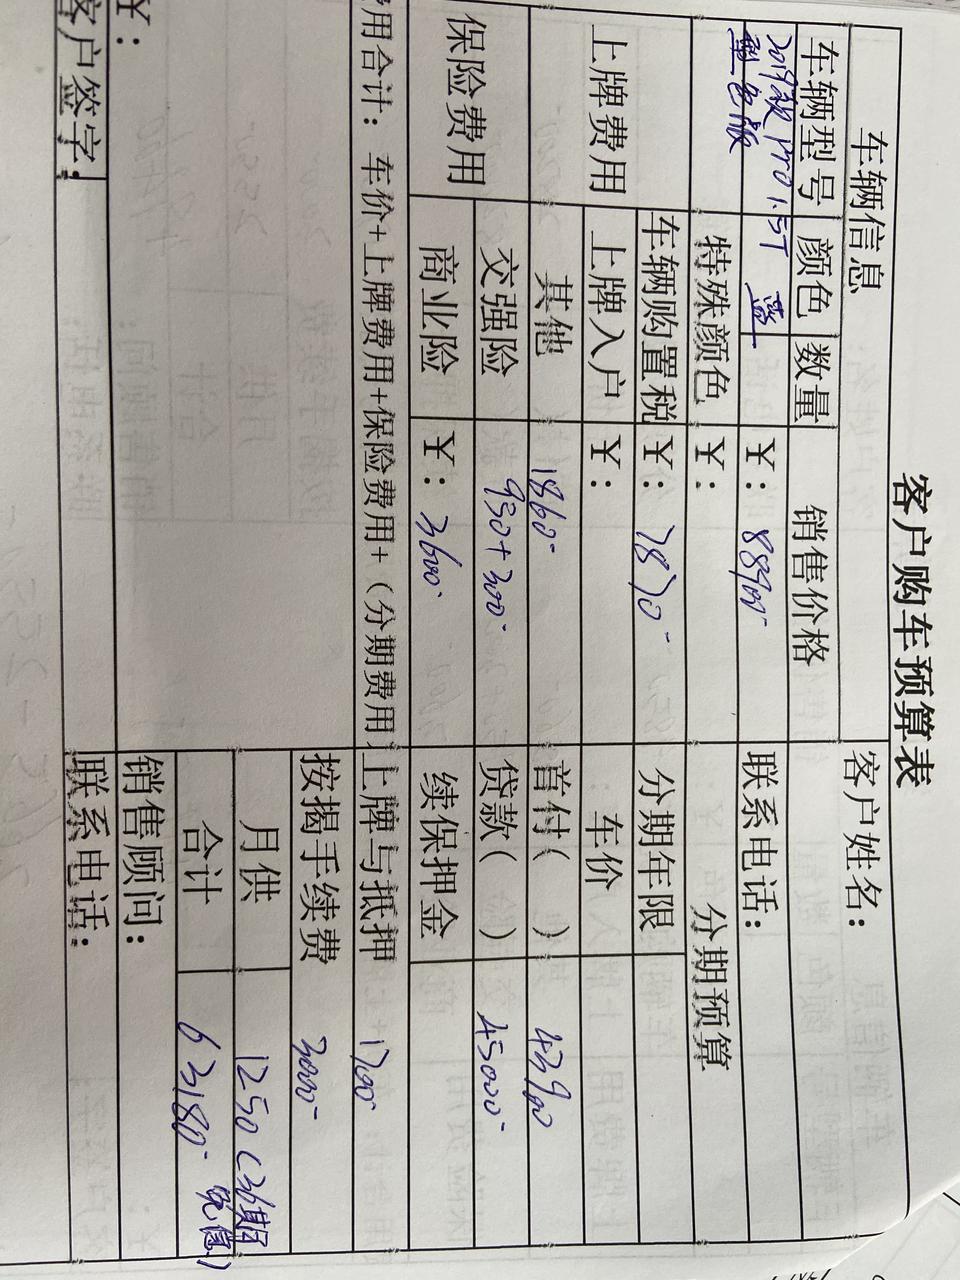 客户购车预算表
车辆信息 客户姓名：
车辆型号 颜色 数量 销售价格 联系电话：
2019款 pro 1.5T 蓝 ￥：88900-
型色版
分期预算
特殊颜色 ￥：
上牌费用 车辆购置税 ￥：7870- 分期年限
上牌入户 ￥： 车价
其他 1860- 首付（ ） 43900
保险费用 交强险 950+300- 贷款（ ） 45000-
商业险 ￥：3600- 续保押金
费用合计：车价+上牌费用+保险费用+（分期费用 上牌与抵押 1700-
按揭手续费 3000-
月供 1250（36期
免息）
合计 63180-
￥： 销售顾问：
客户签字： 联系电话：